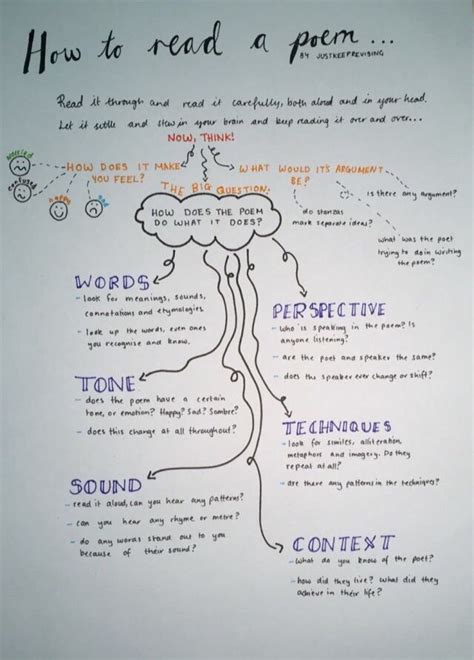 How to read a poem...
BY JUSTKEEPREVISING
Read it through and read it carefully, both aloud and in your head.
Let it settle and stew in your brain and keep reading it over and over...
NOW, THINK!
worried
confused
happy
sad
HOW DOES IT MAKE
YOU FEEL?
WHAT WOULD IT'S ARGUMENT
BE?
is there any argument?
do stanzas
mark separate ideas?
what was the poet
trying to do in writing
the poem?
THE BIG QUESTION:
HOW DOES THE POEM
DO WHAT IT DOES?
WORDS
- look for meanings, sounds,
connotations and etymologies
- look up the words, even ones
you recognise and know.
TONE
- does the poem have a certain
tone, or emotion? Happy? Sad? Sombre?
- does this change at all throughout?
SOUND
- read it aloud, can you hear any patterns?
- can you hear any rhyme or metre?
- do any words stand out to you
because of their sound?
PERSPECTIVE
- who is speaking in the poem? Is
anyone listening?
- are the poet and speaker the same?
- does the speaker ever change or shift?
TECHNIQUES
- look for similes, alliteration,
metaphors and imagery. Do they
repeat at all?
- are there any patterns in the techniques?
CONTEXT
- What do you know of the poet?
- how did they live? What did they
achieve in their life?